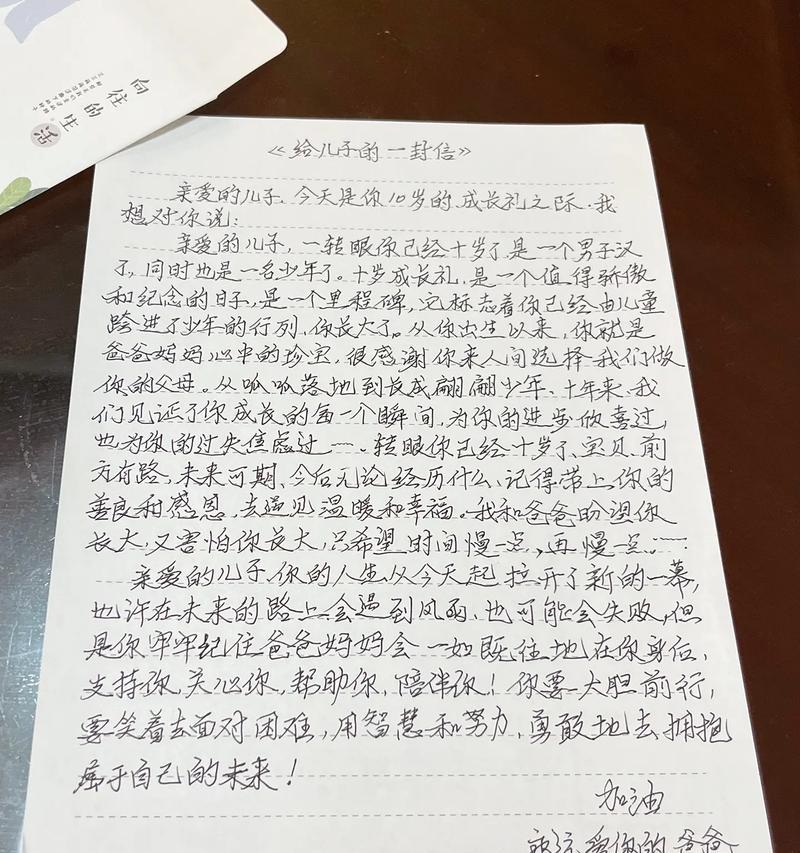 向往的生活
《给儿子的一封信》
亲爱的儿子、今天是你10岁的成长礼之际、我
想对你说:
亲爱的儿子,一转眼你已经十岁了是一个男子汉
了,同时也是一名少年了。十岁成长礼,是一个值得骄傲
和纪念的日子,是一个里程碑,它标志着你已经由儿童
跨进了少年的行列,你长大了。从你出生以来,你就是
爸爸妈妈心中的珍宝,很感谢你来人间选择我们做
你的父母。从呱呱落地到长成翩翩少年、十年来、我
们见证了你成长的每一个瞬间,为你的进步做喜过,
也为你的过失焦虑过……。转眼你已经十岁了、宝贝、前
方有路,未来可期、今后无论经历什么、记得带上你的
善良和感恩,去遇见温暖和幸福。我和爸爸盼望你
长大,又害怕你长大,只希望时间慢一点,再慢一点……
亲爱的儿子、你的人生、从今天起拉开了新的一幕,
也许在未来的路上会遇到风雨、也可能会失败,但
是你牢牢纪住爸爸妈妈会一如既往地在你身后,
支持你,关心你,帮助你,陪伴你!你要大胆前行,
要笑着去面对困难,用智慧和努力,勇敢地去拥抱
属于自己的未来!
加油
永远爱你的爸爸